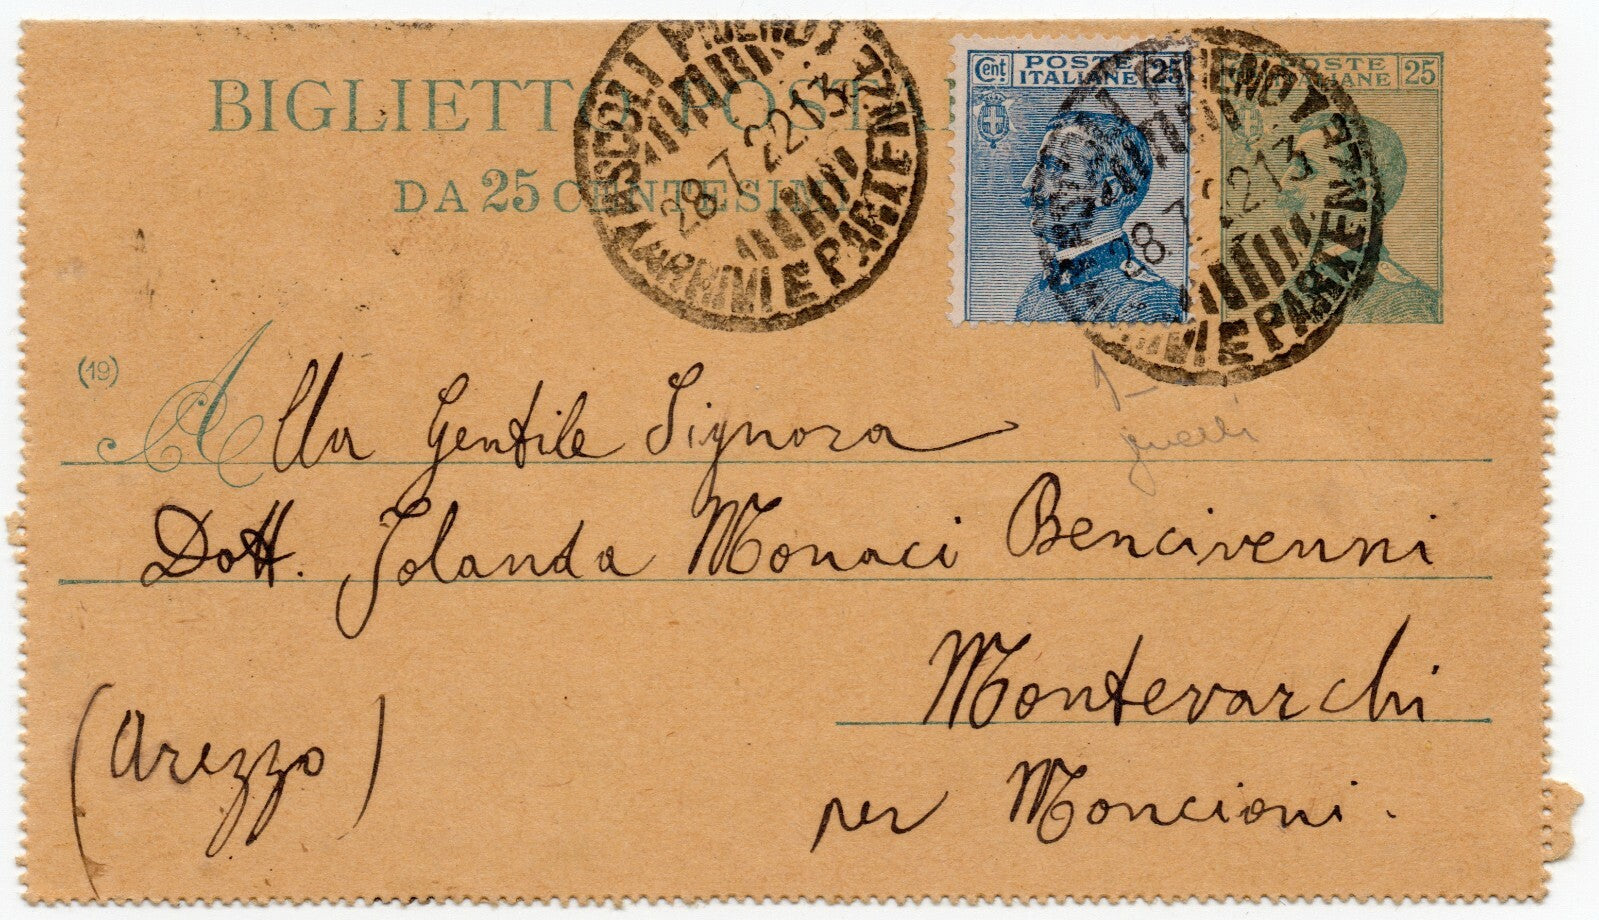 BIGLIETTO POSTA
DA 25 CENTESIMI
ASCOLI PICENO
ARRIVI E PARTENZE
28 7 22 13
Cent POSTE 25
ITALIANE
POSTE 25
ITALIANE
ARRIVI E PARTENZE
28 7 22 13
(19)
Alla Gentile Signora
Dott. Jolanda Monaci Bencivenni
Montevarchi
(Arezzo)
per Moncioni.